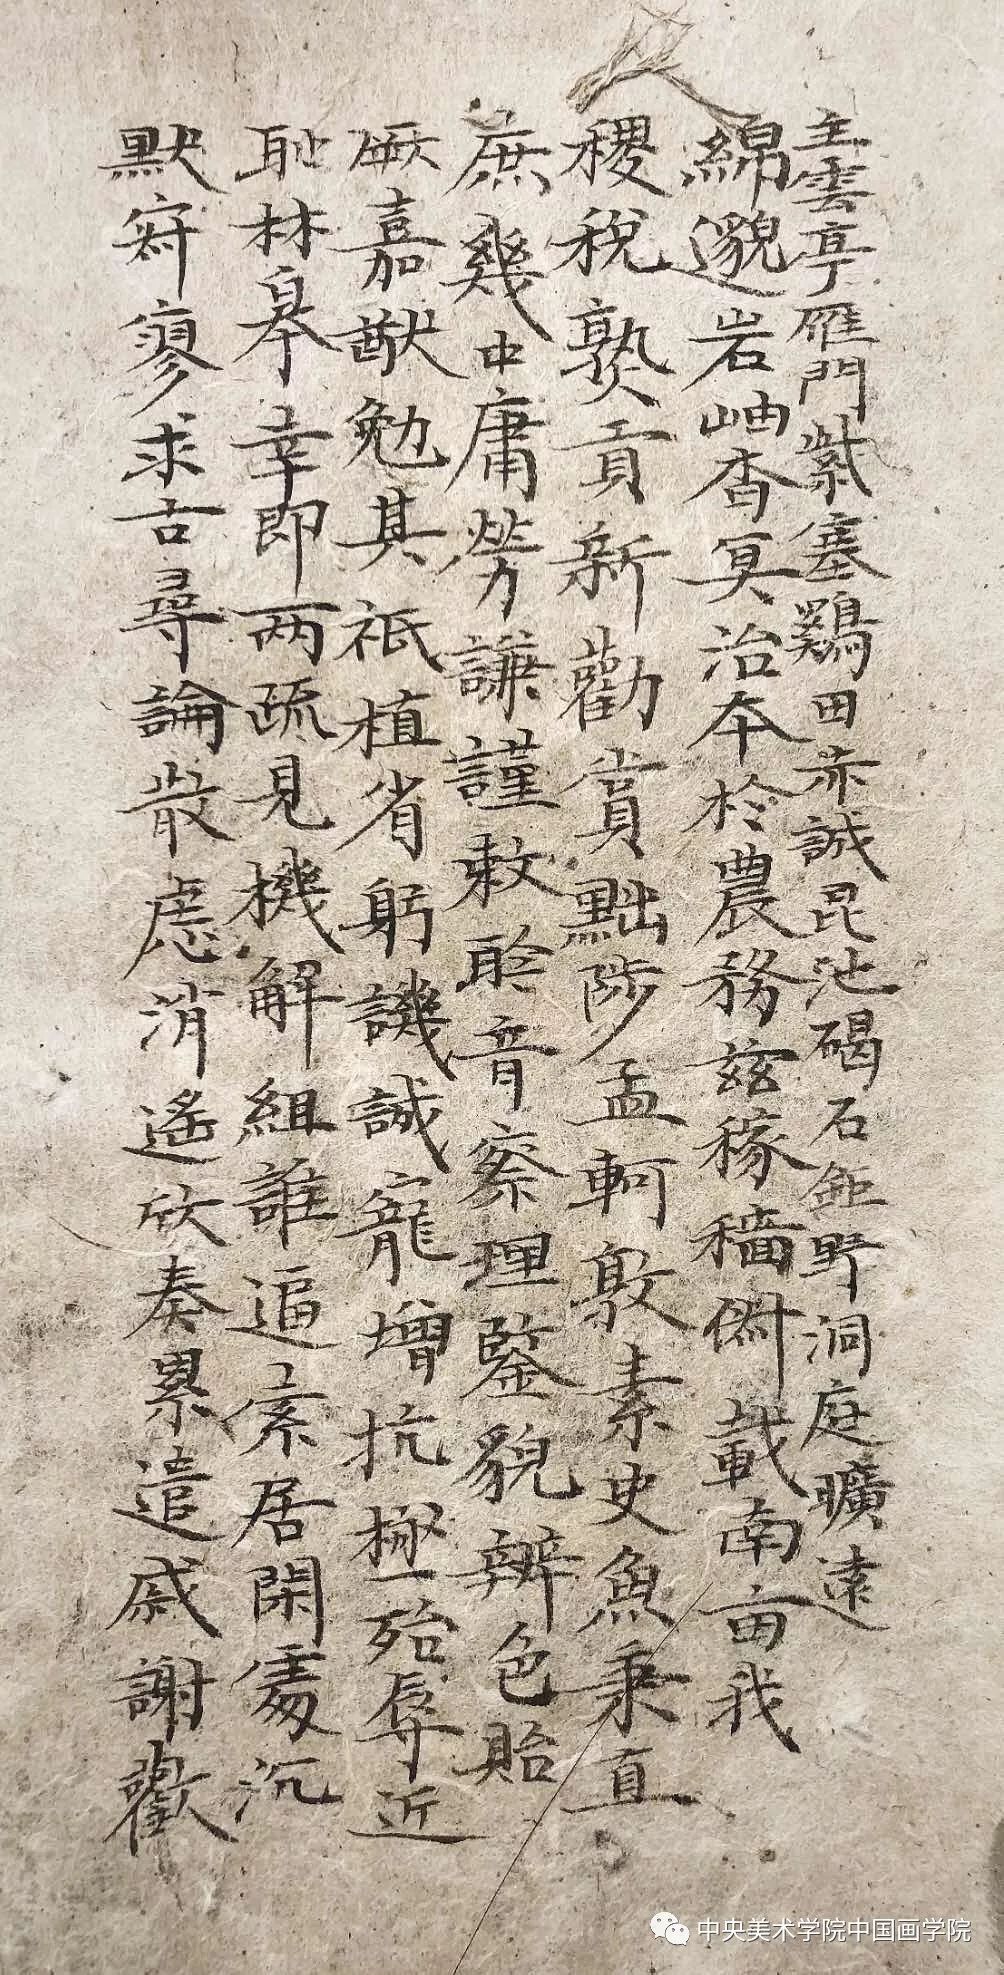 主雲亭雁門紫塞鷄田赤誠昆池碣石鉅野洞庭曠遠
綿邈岩岫杳冥治本於農務茲稼穡俶載南畝我
稷稅熟貢新勸賞黜陟孟軻敦素史魚秉直
庶幾中庸勞謙謹敕聆音察理鑒貌辨色貽
厥嘉猷勉其祗植省躬譏誡寵增抗極殆辱近
耻林皋幸即两疏見機解組誰逼索居閑處沉
默寂寥求古尋論散慮消遙欣奏累遣慼謝歡
中央美术学院中国画学院